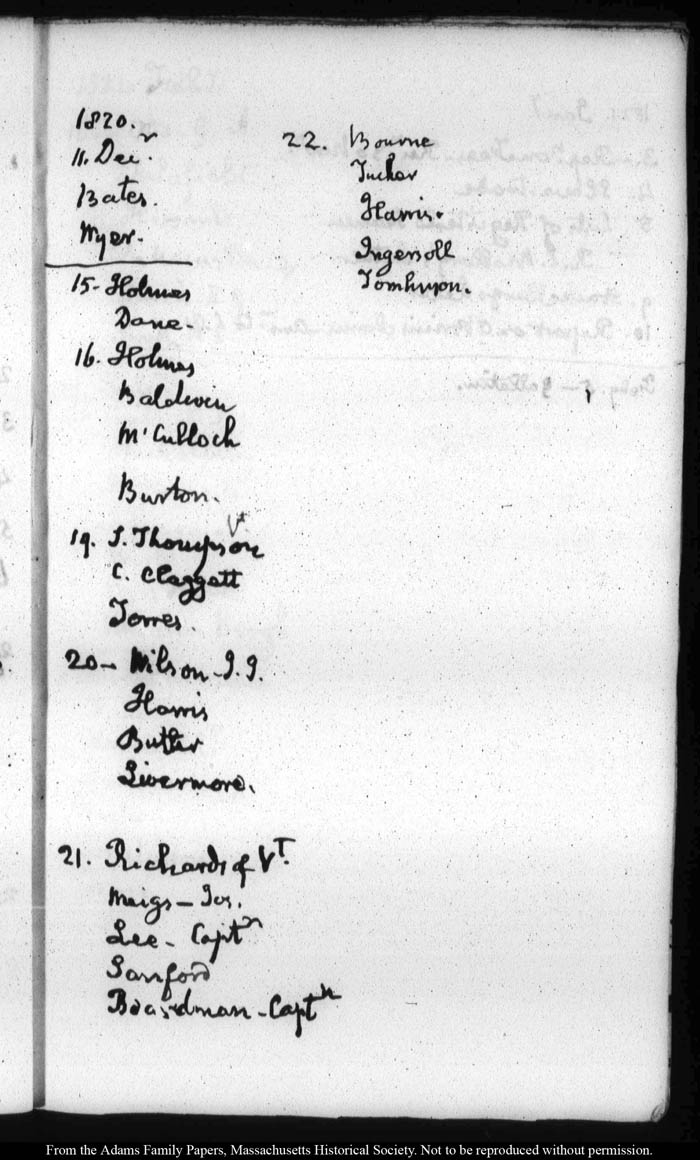 1820.
11. Decr.
Bates.
Wyer.
15- Holmes
Dane.
16. Holmes
Baldwin
McCulloch
Burton.
19. S. Thompson Vt
C. Claggett
Torres.
20- Wilson - J. J.
Harris
Butler
Livermore.
21. Richards of VT.
Meigs - Jos.
Lee - Captn
Sanford
Boardman - Captn
22. Bourne
Tucker
Harris.
Ingersoll
Tomlinson.
From the Adams Family Papers, Massachusetts Historical Society. Not to be reproduced without permission.